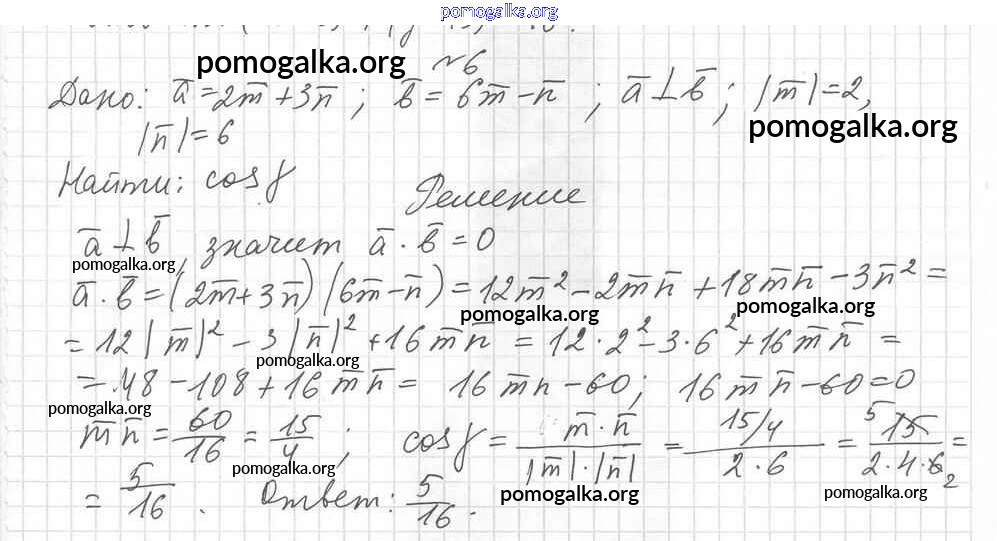 pomogalka.org
№6
pomogalka.org
Дано: a̅ = 2m̅ + 3n̅ ; b̅ = 6m̅ − n̅ ; a̅ ⊥ b̅ ; |m̅| = 2,
|n̅| = 6
pomogalka.org
Найти: cos γ
Решение
a̅ ⊥ b̅, значит a̅ · b̅ = 0
pomogalka.org
pomogalka.org
a̅ · b̅ = (2m̅ + 3n̅)(6m̅ − n̅) = 12m̅² − 2m̅n̅ + 18m̅n̅ − 3n̅² =
pomogalka.org
pomogalka.org
= 12|m̅|² − 3|n̅|² + 16m̅n̅ = 12 · 2² − 3 · 6² + 16m̅n̅ =
pomogalka.org
= 48 − 108 + 16m̅n̅ = 16m̅n − 60; 16m̅n̅ − 60 = 0
pomogalka.org
m̅n̅ = 60/16 = 15/4 ; cos γ = m̅ · n̅ / |m̅| · |n̅| = 15/4 / 2 · 6 = 5 15 / 2 · 4 · 6 2 =
pomogalka.org
pomogalka.org
pomogalka.org
= 5/16 . Ответ: 5/16.